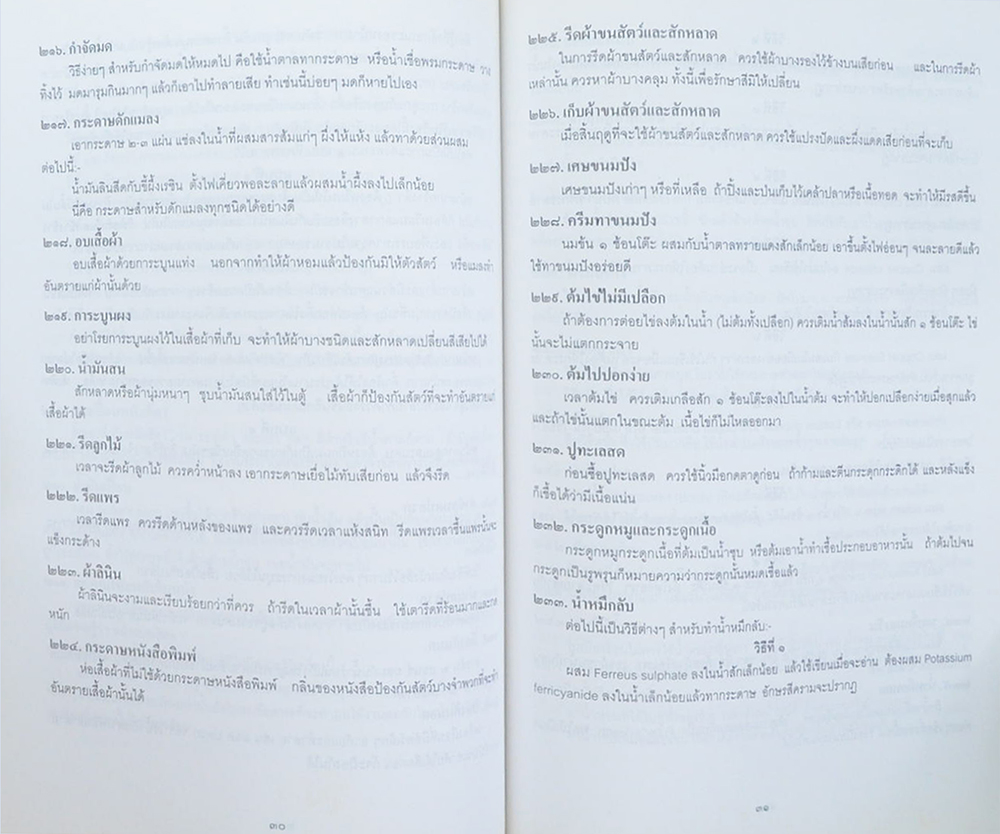 ๒๑๖. กำจัดมด
วิธีง่ายๆ สำหรับกำจัดมดให้หมดไป คือใช้น้ำตาลทากระดาษ หรือน้ำเชื่อพรมกระดาษ วาง
ทิ้งไว้ มดมารุมกินมากๆ แล้วก็เอาไปทำลายเสีย ทำเช่นนี้บ่อยๆ มดก็หายไปเอง
๒๑๗. กระดาษดักแมลง
เอากระดาษ ๒-๓ แผ่น แช่ลงในน้ำที่ผสมสารส้มแก่ๆ ผึ่งให้แห้ง แล้วทาด้วยส่วนผสม
ต่อไปนี้:-
น้ำมันลินสีดกับขี้ผึ้งเรซิน ตั้งไฟเคี่ยวพอละลายแล้วผสมน้ำผึ้งลงไปเล็กน้อย
นี่คือ กระดาษสำหรับดักแมลงทุกชนิดได้อย่างดี
๒๑๘. อบเสื้อผ้า
อบเสื้อผ้าด้วยการะบูนแท่ง นอกจากทำให้ผ้าหอมแล้วป้องกันมิให้ตัวสัตว์ หรือแมลงทำ
อันตรายแก่ผ้านั้นด้วย
๒๑๙. การะบูนผง
อย่าโรยการะบูนผงไว้ในเสื้อผ้าที่เก็บ จะทำให้ผ้าบางชนิดและสักหลาดเปลี่ยนสีเสียไปได้
๒๒๐. น้ำมันสน
สักหลาดหรือผ้านุ่มหนาๆ ชุบน้ำมันสนใส่ไว้ในตู้ เสื้อผ้าก็ป้องกันสัตว์ที่จะทำอันตรายแก่
เสื้อผ้าได้
๒๒๑. รีดลูกไม้
เวลาจะรีดผ้าลูกไม้ ควรคว่ำหน้าลง เอากระดาษเยื่อไม้ทับเสียก่อน แล้วจึงรีด
๒๒๒. รีดแพร
เวลารีดแพร ควรรีดด้านหลังของแพร และควรรีดเวลาแห้งสนิท รีดแพรเวลาชื้นแพรนั้นจะ
แข็งกระด้าง
๒๒๓. ผ้าลินิน
ผ้าลินินจะงามและเรียบร้อยกว่าที่ควร ถ้ารีดในเวลาผ้านั้นชื้น ใช้เตารีดที่ร้อนมากและกด
หนัก
๒๒๔. กระดาษหนังสือพิมพ์
ห่อเสื้อผ้าที่ไม่ใช้ด้วยกระดาษหนังสือพิมพ์ กลิ่นของหนังสือป้องกันสัตว์บางจำพวกที่จะทำ
อันตรายเสื้อผ้านั้นได้
๓๐
๒๒๕. รีดผ้าขนสัตว์และสักหลาด
ในการรีดผ้าขนสัตว์และสักหลาด ควรใช้ผ้าบางรองไว้ข้างบนเสียก่อน และในการรีดผ้า
เหล่านั้น ควรหาผ้าบางคลุม ทั้งนี้เพื่อรักษาสีมิให้เปลี่ยน
๒๒๖. เก็บผ้าขนสัตว์และสักหลาด
เมื่อสิ้นฤดูที่จะใช้ผ้าขนสัตว์และสักหลาด ควรใช้แปรงปัดและผึ่งแดดเสียก่อนที่จะเก็บ
๒๒๗. เศษขนมปัง
เศษขนมปังเก่าๆ หรือที่เหลือ ถ้าปิ้งและป่นเก็บไว้เคล้าปลาหรือเนื้อทอด จะทำให้มีรสดีขึ้น
๒๒๘. ครีมทาขนมปัง
นมข้น ๑ ช้อนโต๊ะ ผสมกับน้ำตาลทรายแดงสักเล็กน้อย เอาขึ้นตั้งไฟอ่อนๆ จนละลายดีแล้ว
ใช้ทาขนมปังอร่อยดี
๒๒๙. ต้มไข่ไม่มีเปลือก
ถ้าต้องการต่อยไข่ลงต้มในน้ำ (ไม่ต้มทั้งเปลือก) ควรเติมน้ำส้มลงในน้ำนั้นสัก ๑ ช้อนโต๊ะ ไข่
นั้นจะไม่แตกกระจาย
๒๓๐. ต้มไปปอกง่าย
เวลาต้มไข่ ควรเติมเกลือสัก ๑ ช้อนโต๊ะลงไปในน้ำต้ม จะทำให้ปอกเปลือกง่ายเมื่อสุกแล้ว
และถ้าไข่นั้นแตกในขณะต้ม เนื้อไข่ก็ไม่ไหลออกมา
๒๓๑. ปูทะเลสด
ก่อนซื้อปูทะเลสด ควรใช้นิ้วมือกดตาดูก่อน ถ้าก้ามและตีนกระตุกกระดิกได้ และหลังแข็ง
ก็เชื่อได้ว่ามีเนื้อแน่น
๒๓๒. กระดูกหมูและกระดูกเนื้อ
กระดูกหมูกระดูกเนื้อที่ต้มเป็นน้ำซุบ หรือต้มเอาน้ำทำเชื้อประกอบอาหารนั้น ถ้าต้มไปจน
กระดูกเป็นรูพรุนก็หมายความว่ากระดูกนั้นหมดเชื้อแล้ว
๒๓๓. น้ำหมึกลับ
ต่อไปนี้เป็นวิธีต่างๆ สำหรับทำน้ำหมึกลับ:-
วิธีที่ ๑
ผสม Ferreus sulphate ลงในน้ำสักเล็กน้อย แล้วใช้เขียนเมื่อจะอ่าน ต้องผสม Potassium
ferricyanide ลงในน้ำเล็กน้อยแล้วทากระดาษ อักษรสีครามจะปรากฏ
๓๑